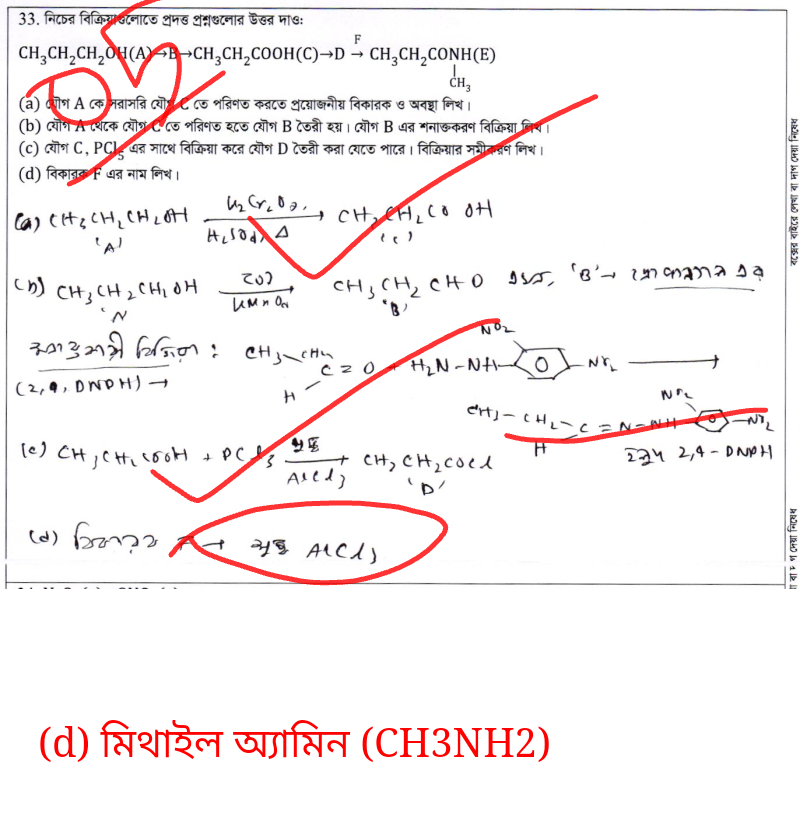 33. নিচের বিক্রিয়াগুলোতে প্রদত্ত প্রশ্নগুলোর উত্তর দাও:
05
CH₃CH₂CH₂OH(A)→B→CH₃CH₂COOH(C)→D →F CH₃CH₂CONH(E)
CH₃
(a) যৌগ A কে সরাসরি যৌগ C তে পরিণত করতে প্রয়োজনীয় বিকারক ও অবস্থা লিখ।
(b) যৌগ A থেকে যৌগ C তে পরিণত হতে যৌগ B তৈরী হয়। যৌগ B এর শনাক্তকরণ বিক্রিয়া লিখ।
(c) যৌগ C, PCl₅ এর সাথে বিক্রিয়া করে যৌগ D তৈরী করা যেতে পারে। বিক্রিয়ার সমীকরণ লিখ।
(d) বিকারক F এর নাম লিখ।
(a) CH₃CH₂CH₂OH K₂Cr₂O₇, H₂SO₄, Δ → CH₃CH₂COOH
'A' 'C'
(b) CH₃CH₂CH₂OH [O] KMnO₄ → CH₃CH₂CHO
'B'
(2,4, DNPH) → CH₃–CH₂ C=O + H₂N–NH– NO₂ –NO₂ →
H
CH₃–CH₂–C=N–NH– NO₂ –NO₂
H
হলুদ 2,4-DNPH
(c) CH₃CH₂COOH + PCl₃ শুষ্ক AlCl₃ → CH₃CH₂COCl
'D'
(d) বিকারক F → শুষ্ক AlCl₃
বক্সের বাইরে লেখা বা দাগ দেয়া নিষেধ
(d) মিথাইল অ্যামিন (CH3NH2)